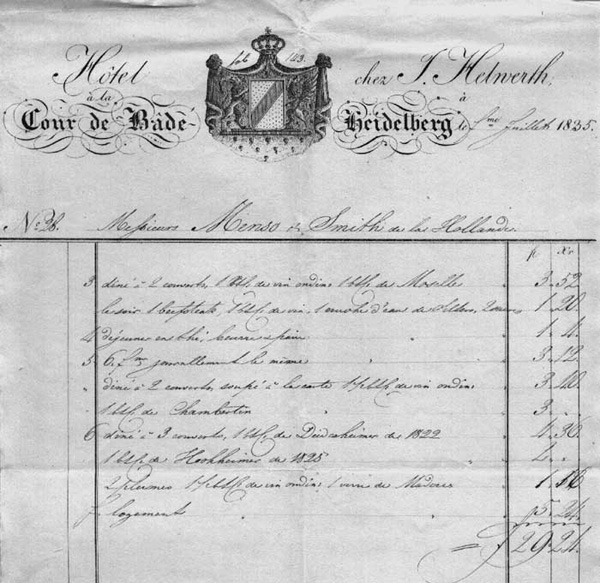 fol 143.
Hôtel chez J. Helwerth,
à la à
Cour de Bade Heidelberg le Juillet 1835.
No. 28. Messieurs Menso & Smith de la Hollande.
fl Xr
3 diné à 2 couverts, 1 Btl. de vin ordin. 1 btl. de Moselle 3. 52
le soir 1 beefsteak, 1 btl. de vin, 1 d'eau de Selters, 1. 20.
4 déjeuner en thé, beurre & pain 1. 4.
5 & 6 journallement le même 3. 12
" diné à 2 couverts, soupé à la carte btl. de vin ordin. 3. 40
1 btl. de Chambertin 3. -
6 diné à 3 couverts, 1 btl. de Deidesheimer de 1822 4. 30.
1 btl. de Hochheimer de 1825
2 btl. de vin ordin. 1 verre de Madeire 1. 16
logement 5. 24.
= f 29. 21.